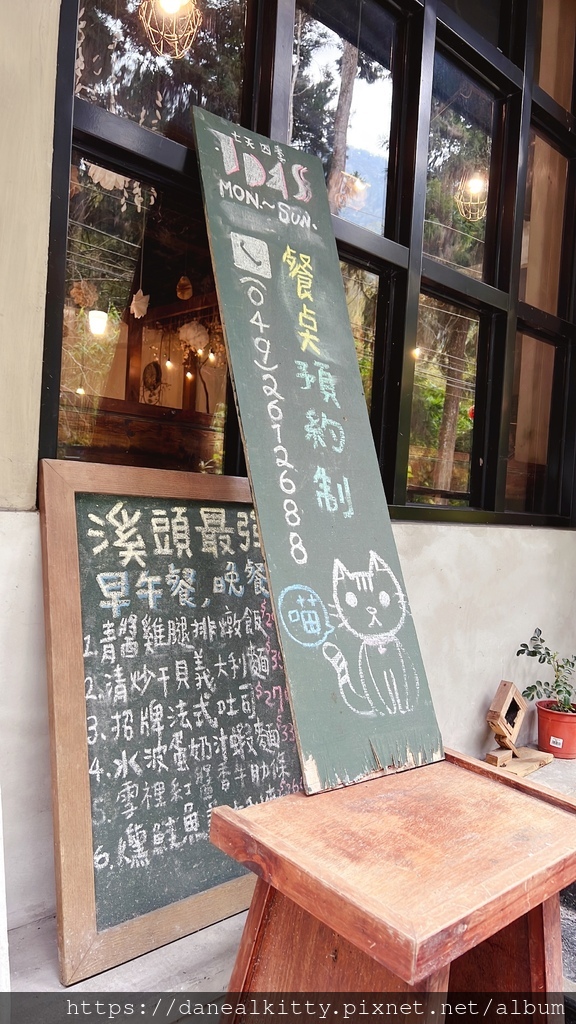 七天四季
7DAS
MON.~SUN.
餐点預約制
(049)2672688
喵
溪頭最強
早午餐,晚餐
1.青醬雞腿排燉飯
2.清炒干貝義大利麵
3.招牌法式吐司
4.水波蛋奶油蝦麵
5.雲裡紅醬香牛肋條
6.燻鮭魚
https://danealkitty.pixnet.net/album